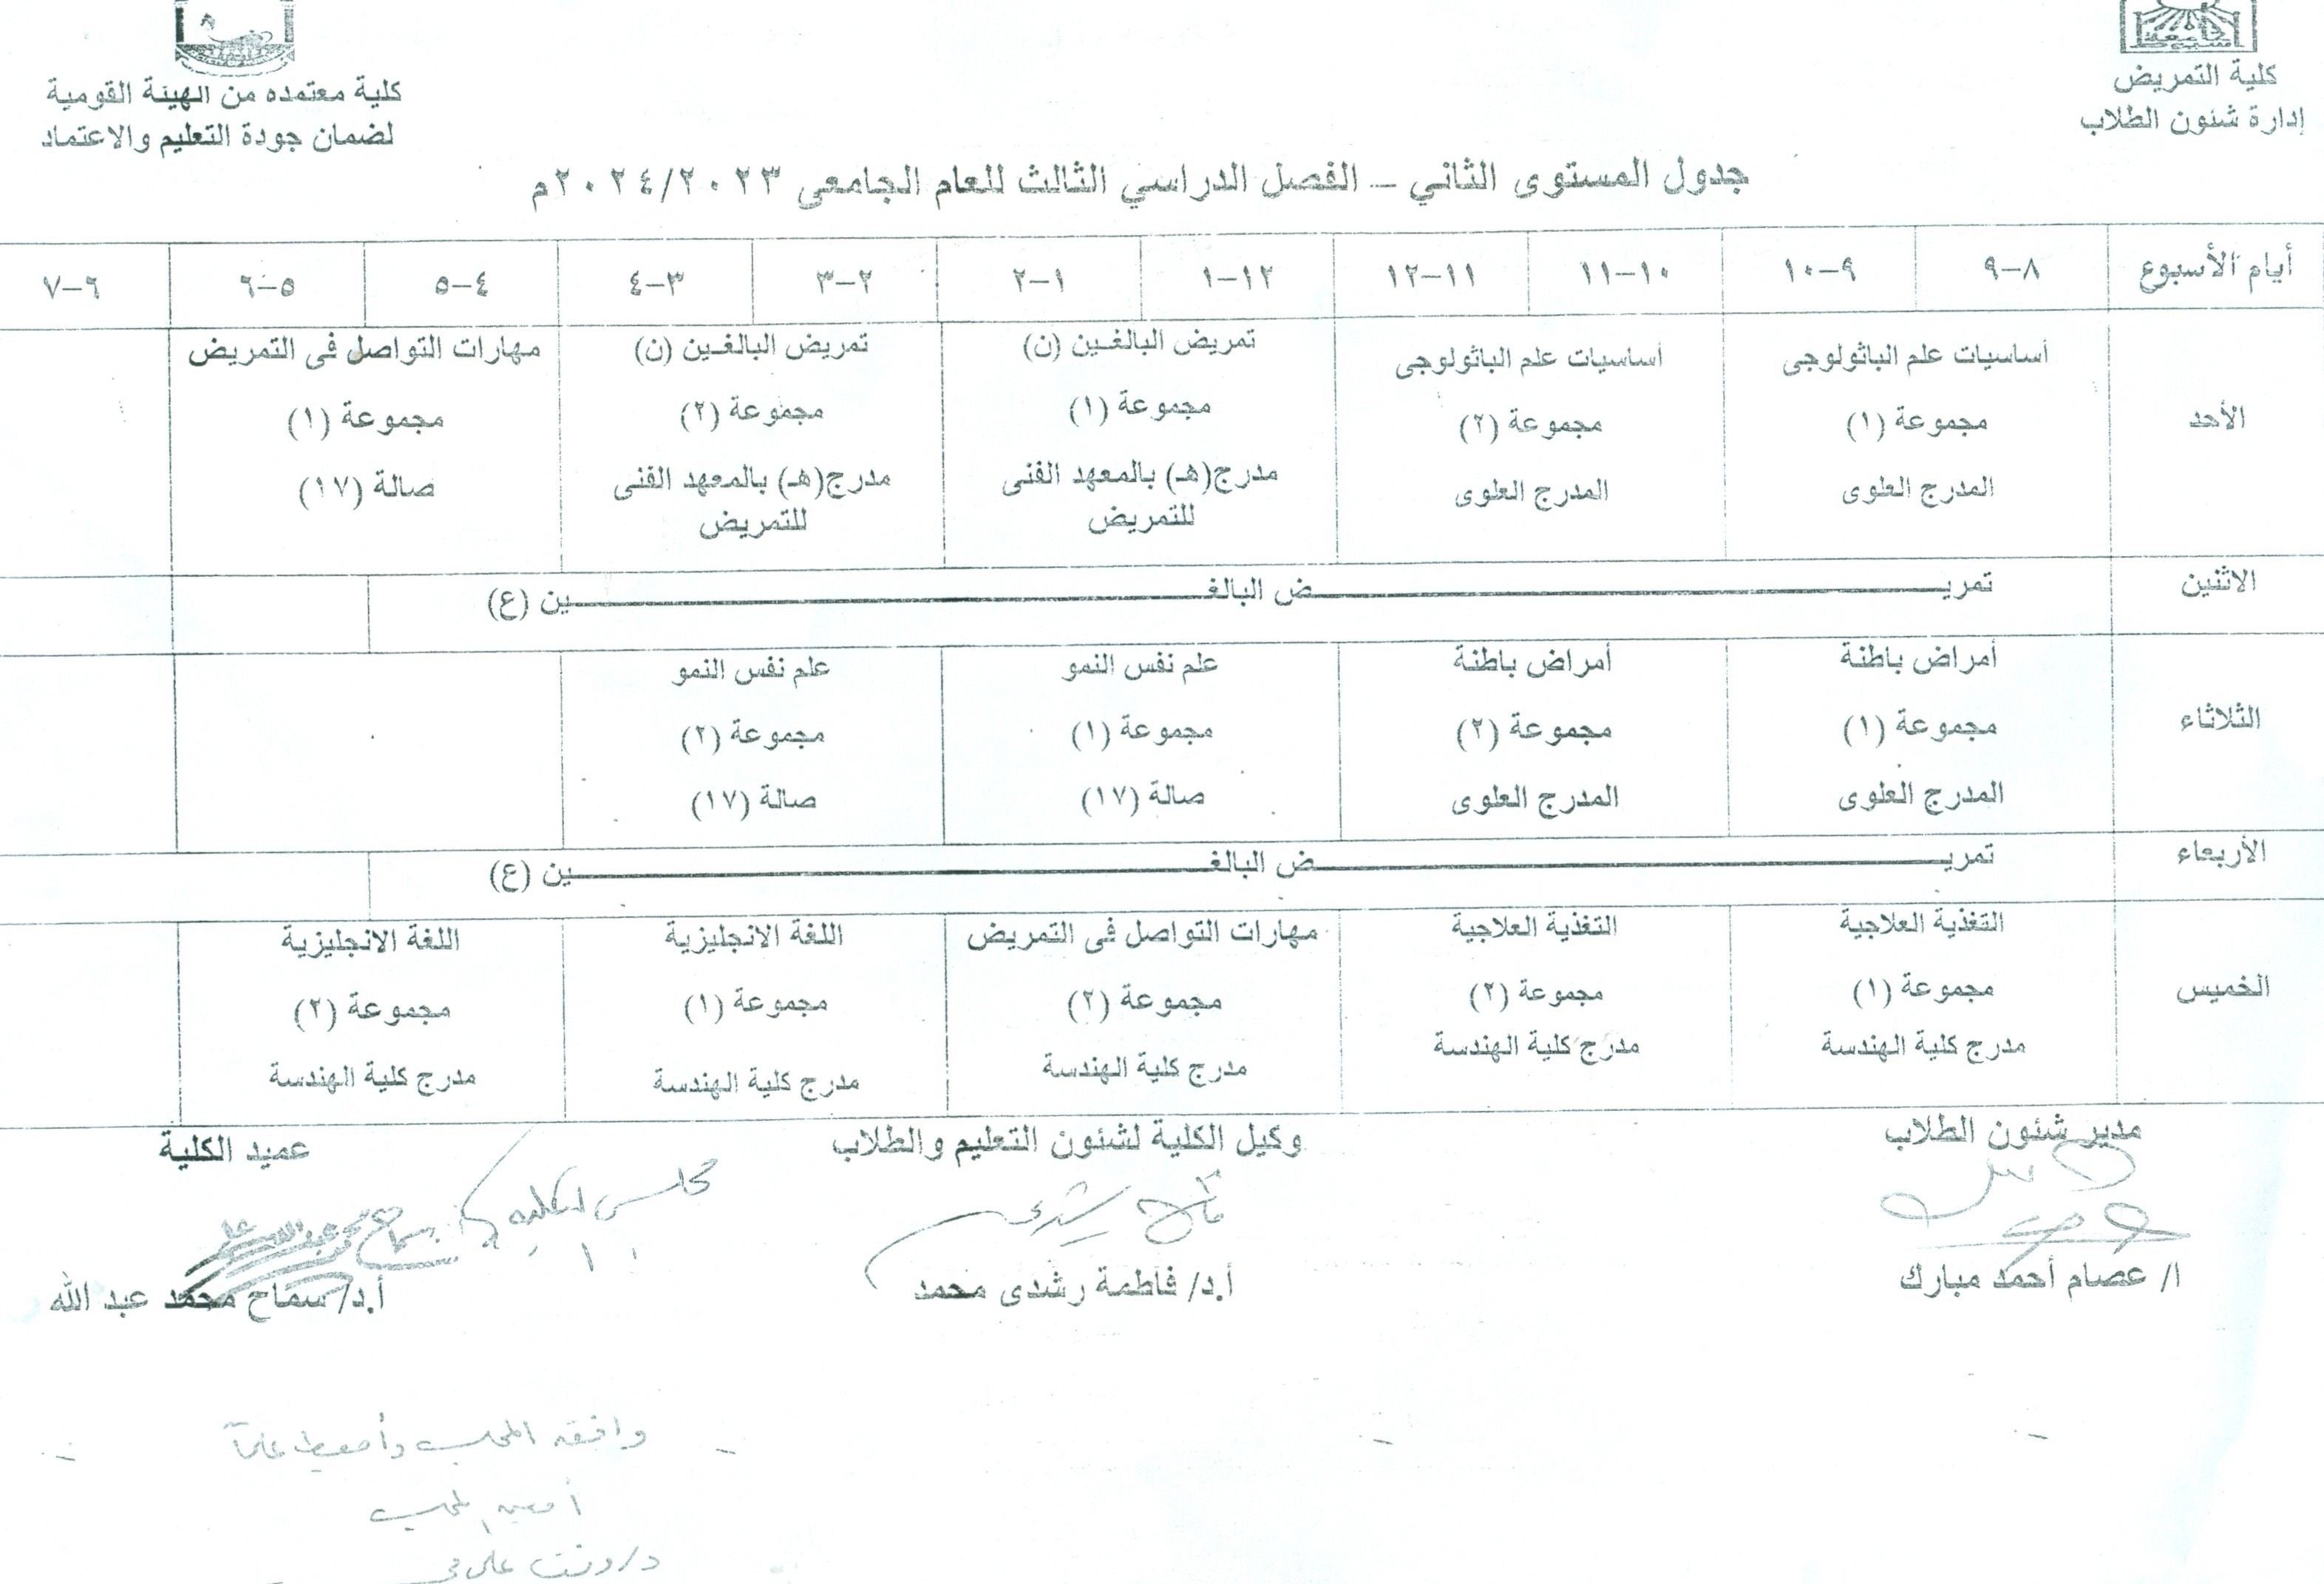 كلية التمريض
إدارة شئون الطلاب
كلية معتمده من الهيئة القومية
لضمان جودة التعليم والاعتماد
جدول المستوى الثاني – الفصل الدراسي الثالث للعام الجامعى ٢٠٢٤/٢٠٢٣م
أيام الأسبوع ٨–٩ ٩–١٠ ١٠–١١ ١١–١٢ ١٢–١ ١–٢ ٢–٣ ٣–٤ ٤–٥ ٥–٦ ٦–٧
الأحد
أساسيات علم الباثولوجى
مجموعة (١)
المدرج العلوى
أساسيات علم الباثولوجى
مجموعة (٢)
المدرج العلوى
تمريض البالغين (ن)
مجموعة (١)
مدرج(هـ) بالمعهد الفنى
للتمريض
تمريض البالغين (ن)
مجموعة (٢)
مدرج(هـ) بالمعهد الفنى
للتمريض
مهارات التواصل فى التمريض
مجموعة (١)
صالة (١٧)
الاثنين
تمريـــض البالغـــين (ع)
الثلاثاء
أمراض باطنة
مجموعة (١)
المدرج العلوى
أمراض باطنة
مجموعة (٢)
المدرج العلوى
علم نفس النمو
مجموعة (١)
صالة (١٧)
علم نفس النمو
مجموعة (٢)
صالة (١٧)
الأربعاء
تمريـــض البالغـــين (ع)
الخميس
التغذية العلاجية
مجموعة (١)
مدرج كلية الهندسة
التغذية العلاجية
مجموعة (٢)
مدرج كلية الهندسة
مهارات التواصل فى التمريض
مجموعة (٢)
مدرج كلية الهندسة
اللغة الانجليزية
مجموعة (١)
مدرج كلية الهندسة
اللغة الانجليزية
مجموعة (٢)
مدرج كلية الهندسة
مدير شئون الطلاب
وكيل الكلية لشئون التعليم والطلاب
عميد الكلية
مجلس الكلية
ا/ عصام أحمد مبارك
أ.د/ فاطمة رشدى محمد
أ.د/ سماح محمد عبد الله